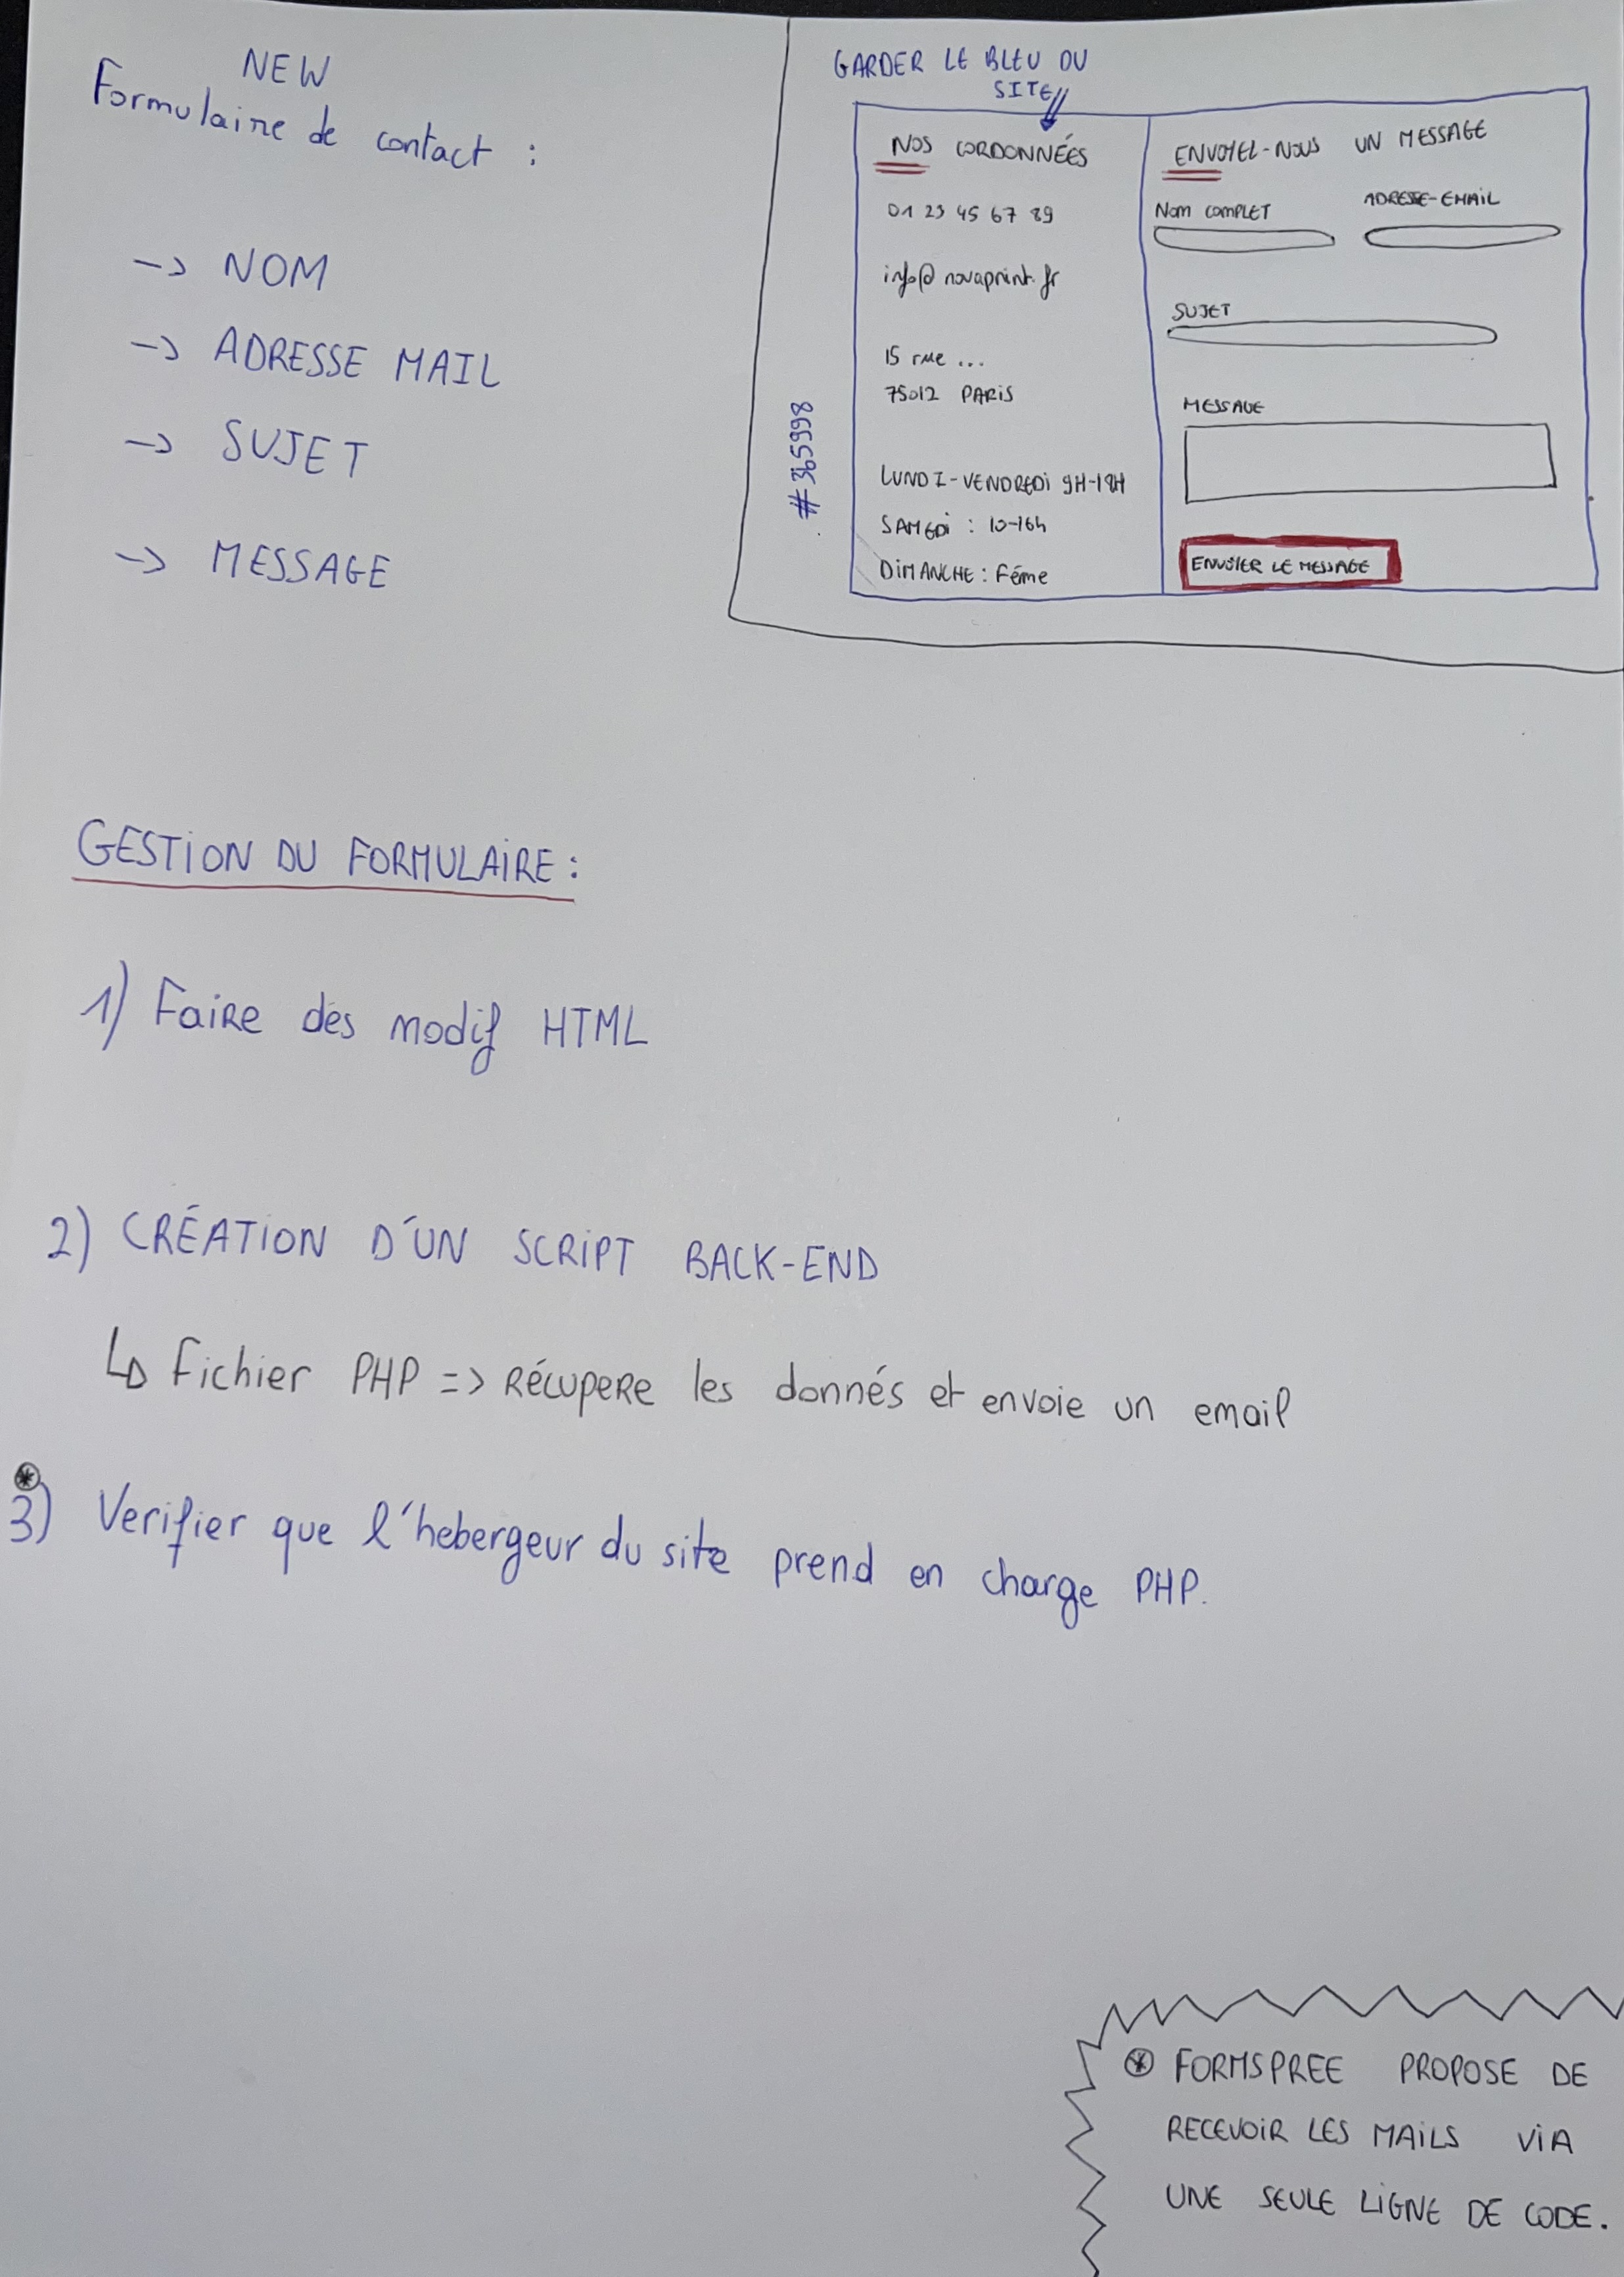 NEW
Formulaire de contact :
-> NOM
-> ADRESSE MAIL
-> SUJET
-> MESSAGE
GARDER LE BLEU DU
SITE
#365998
NOS CORDONNÉES
01 23 45 67 89
info@novaprint.fr
15 rue ...
75012 PARIS
LUNDI-VENDREDI 9H-18H
SAMEDI : 10-16h
DIMANCHE : Féme
ENVOYEZ-NOUS UN MESSAGE
Nom COMPLET
ADRESSE-EMAIL
SUJET
MESSAGE
ENVOYER LE MESSAGE
GESTION DU FORMULAIRE :
1) Faire des modif HTML
2) CRÉATION D'UN SCRIPT BACK-END
↳ Fichier PHP => RÉCUPERE les donnés et envoie un email
* 3) Verifier que l'hebergeur du site prend en charge PHP.
* FORMSPREE PROPOSE DE
RECEVOIR LES MAILS VIA
UNE SEULE LIGNE DE CODE.